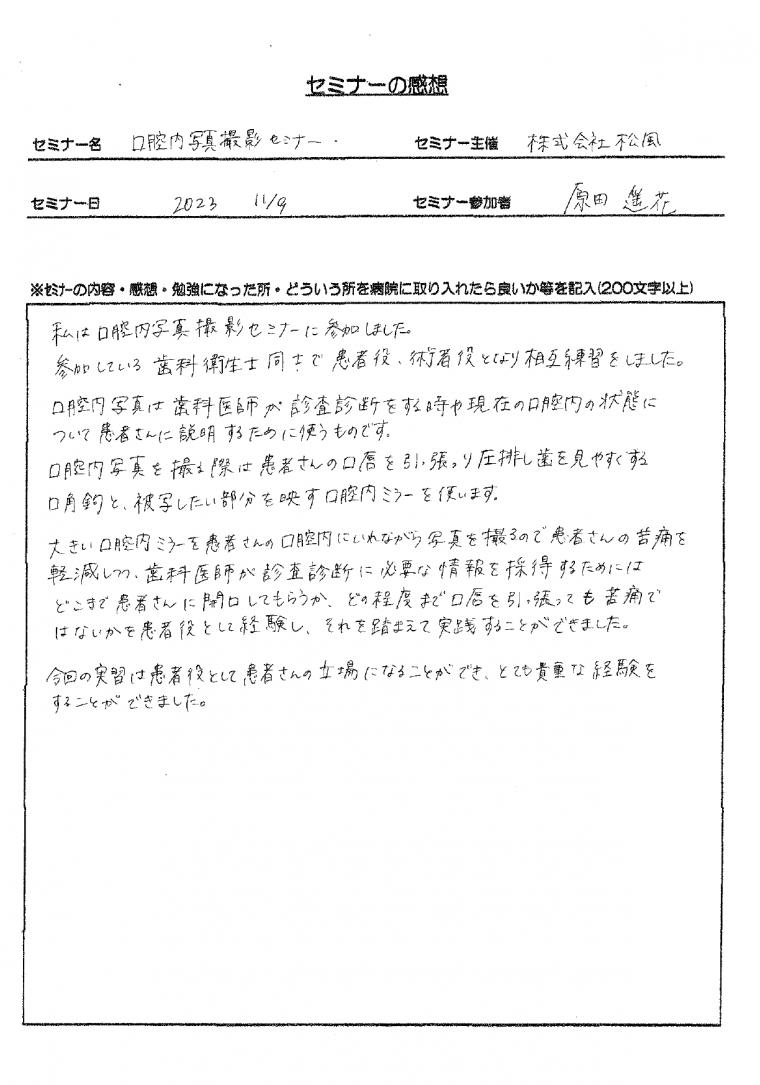 セミナーの感想
セミナー名 口腔内写真撮影セミナー. セミナー主催 株式会社松風
セミナー日 2023 11/9 セミナー参加者 原田 遥花
※セミナーの内容・感想・勉強になった所・どういう所を病院に取り入れたら良いか等を記入(200文字以上)
私は口腔内写真撮影セミナーに参加しました。
参加している歯科衛生士同士で患者役、術者役となり相互練習をしました。
口腔内写真は歯科医師が診査診断をする時や現在の口腔内の状態に
ついて患者さんに説明するために使うものです。
口腔内写真を撮る際は患者さんの口唇を引っ張り圧排し歯を見やすくする
口角鉤と、被写したい部分を映す口腔内ミラーを使います。
大きい口腔内ミラーを患者さんの口腔内にいれながら写真を撮るので患者さんの苦痛を
軽減しつつ、歯科医師が診査診断に必要な情報を採得するためには
どこまで患者さんに開口してもらうか、どの程度まで口唇を引っ張っても苦痛で
はないかを患者役として経験し、それを踏まえて実践することができました。
今回の実習は患者役として患者さんの立場になることができ、とても貴重な経験を
することができました。